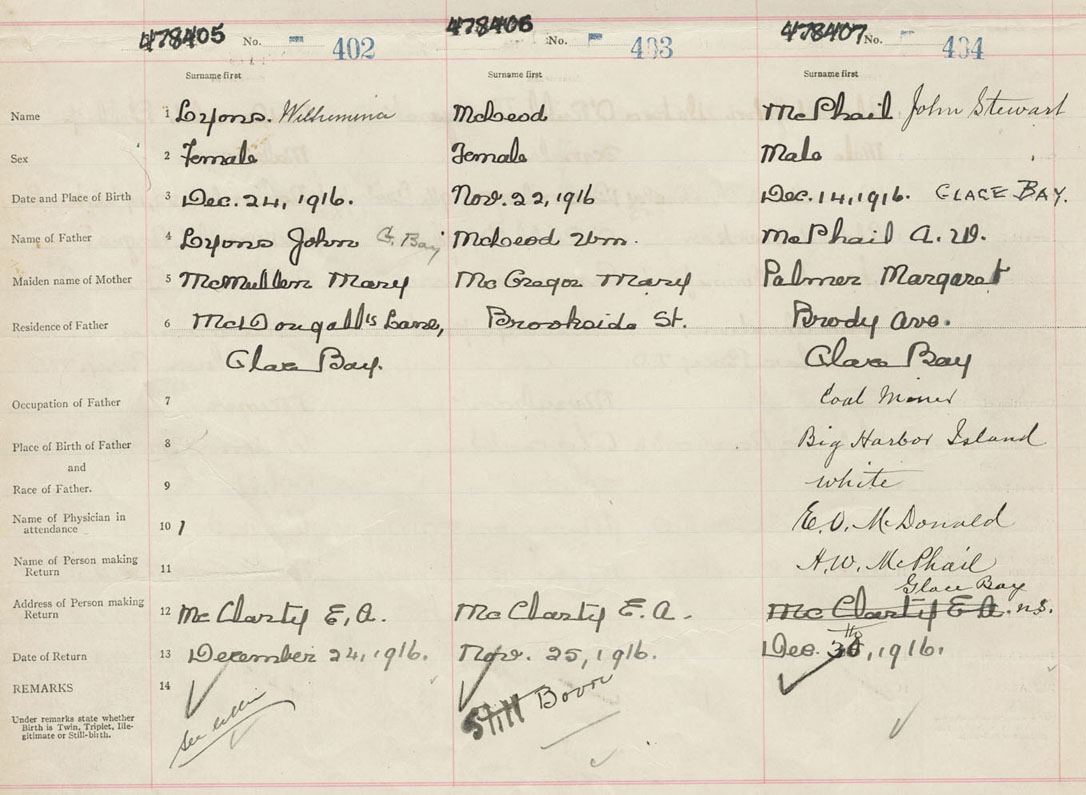 478405 No. 402 478406 No. 403 478407 No. 404
Surname first Surname first Surname first
Name 1 Lyons. Wilhemina McLeod McPhail John Stewart
Sex 2 Female Female Male
Date and Place of Birth 3 Dec. 24, 1916. Nov. 22, 1916 Dec. 14, 1916. GLACE BAY.
Name of Father 4 Lyons John G. Bay McLeod Wm. McPhail A. W.
Maiden name of Mother 5 McMullen Mary McGregor Mary Palmer Margaret
Residence of Father 6 McDougall's Lane, Brookside St. Brody Ave.
Glace Bay. Glace Bay
Occupation of Father 7 Coal Miner
Place of Birth of Father 8 Big Harbor Island
and
Race of Father. 9 white
Name of Physician in
attendance 10 1 E. O. McDonald
Name of Person making
Return 11 A. W. McPhail
Glace Bay
Address of Person making
Return 12 McClarty E. A. McClarty E. A. McClarty E. A. n.s.
Date of Return 13 December 24, 1916. Nov. 25, 1916. Dec. 30, 1916.
REMARKS 14
Under remarks state whether
Birth is Twin, Triplet, Ille-
gitimate or Still-birth.
see Still Born